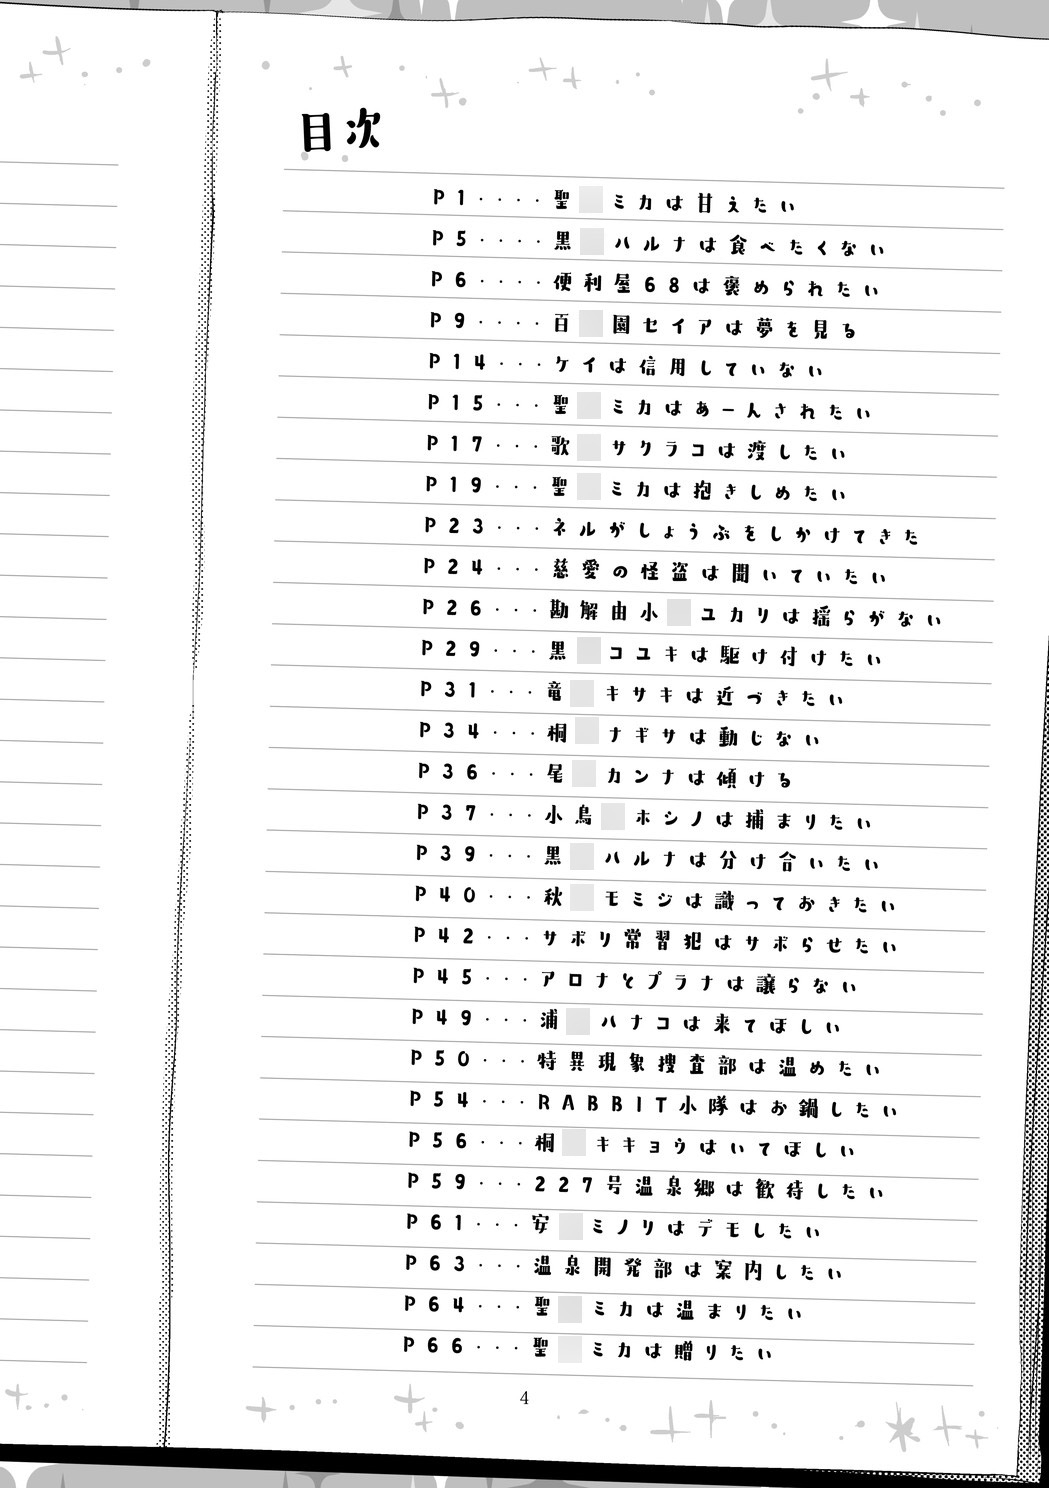 目次
P1････聖 ミカは甘えたい
P5････黒 ハルナは食べたくない
P6････便利屋68は褒められたい
P9････百 園セイアは夢を見る
P14･･･ケイは信用していない
P15･･･聖 ミカはあーんされたい
P17･･･歌 サクラコは渡したい
P19･･･聖 ミカは抱きしめたい
P23･･･ネルがしょうぶをしかけてきた
P24･･･慈愛の怪盗は聞いていたい
P26･･･勘解由小 ユカリは揺らがない
P29･･･黒 コユキは駆け付けたい
P31･･･竜 キサキは近づきたい
P34･･･桐 ナギサは動じない
P36･･･尾 カンナは傾ける
P37･･･小鳥 ホシノは捕まりたい
P39･･･黒 ハルナは分け合いたい
P40･･･秋 モミジは識っておきたい
P42･･･サボリ常習犯はサボらせたい
P45･･･アロナとプラナは譲らない
P49･･･浦 ハナコは来てほしい
P50･･･特異現象捜査部は温めたい
P54･･･RABBIT小隊はお鍋したい
P56･･･桐 キキョウはいてほしい
P59･･･227号温泉郷は歓待したい
P61･･･安 ミノリはデモしたい
P63･･･温泉開発部は案内したい
P64･･･聖 ミカは温まりたい
P66･･･聖 ミカは贈りたい
4